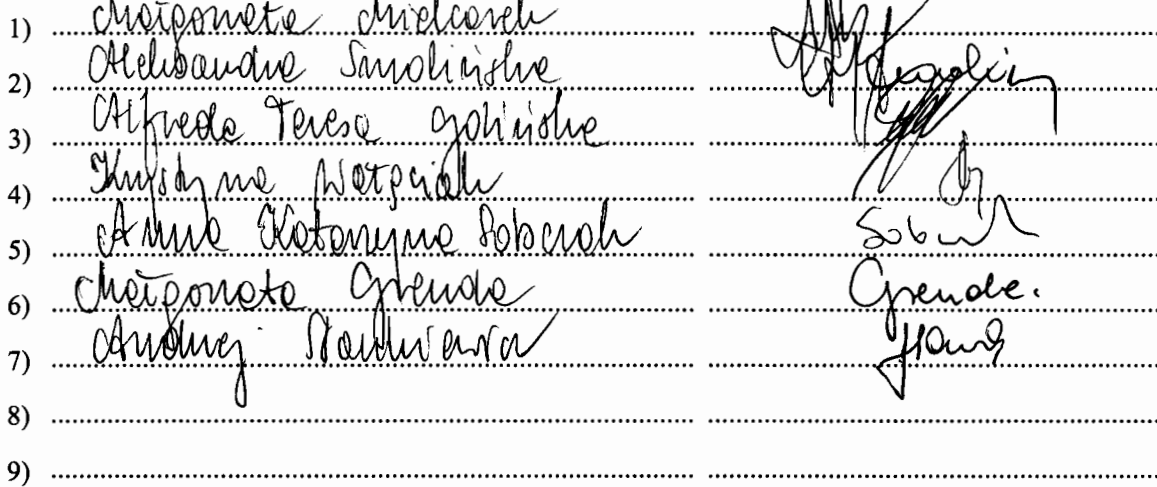 1) Małgorzata Mielcarek
2) Aleksandra Smolińska
3) Alfreda Teresa Golińska
4) Krystyna
5) Anna Katarzyna Sobczak Sobczak
6) Małgorzata Grenda Grenda.
7) Andrzej
8)
9)